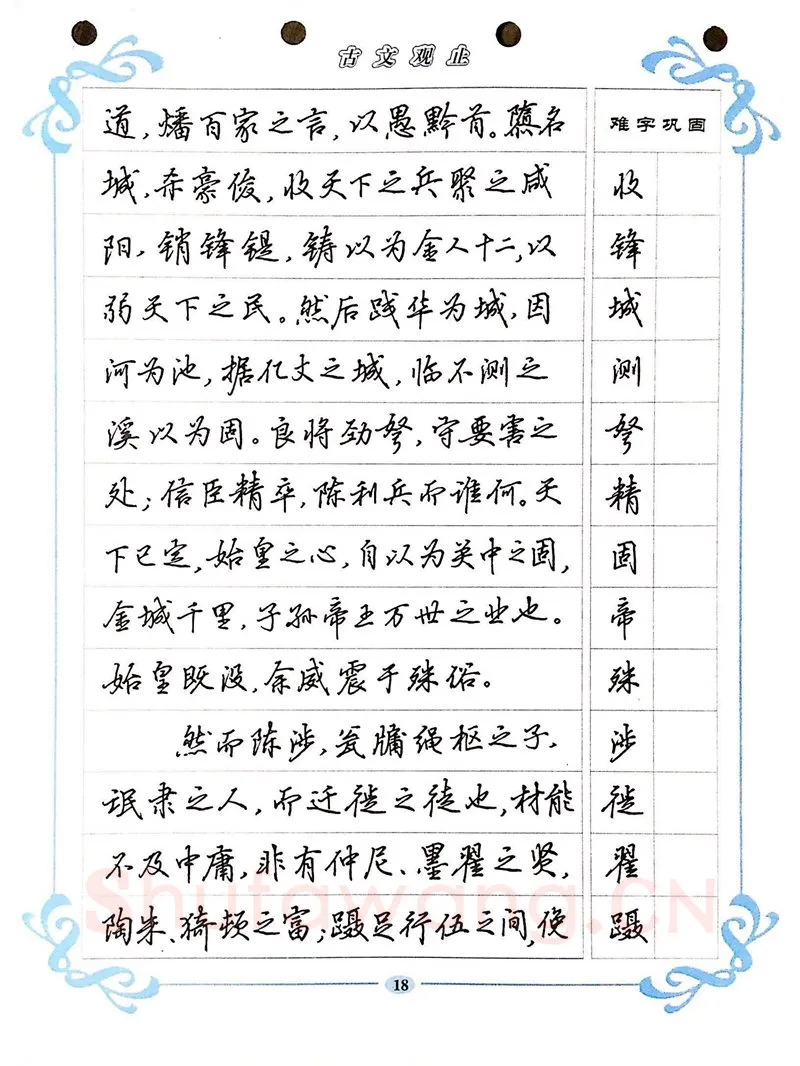 古文观止
道，燔百家之言，以愚黔首。隳名
城，杀豪俊，收天下之兵聚之咸
阳，销锋镝，铸以为金人十二，以
弱天下之民。然后践华为城，因
河为池，据亿丈之城，临不测之
溪以为固。良将劲弩，守要害之
处；信臣精卒，陈利兵而谁何。天
下已定，始皇之心，自以为关中之固，
金城千里，子孙帝王万世之业也。
始皇既没，余威震于殊俗。
然而陈涉，瓮牖绳枢之子，
氓隶之人，而迁徙之徒也，材能
不及中庸，非有仲尼、墨翟之贤，
陶朱、猗顿之富；蹑足行伍之间，俛
难字巩固
收
锋
城
测
弩
精
固
帝
殊
涉
徙
翟
蹑
Shufawang.CN
18